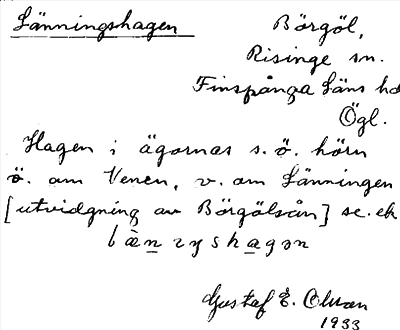 Länningshagen
Börgöl,
Risinge sn.
Finspånga läns hd
Ögl.
Hagen i ägornas s.ö. hörn
ö. om Venen, v. om Länningen
[utvidgning av Börgölsån] se. ek
Gustaf E. Olsson
1933